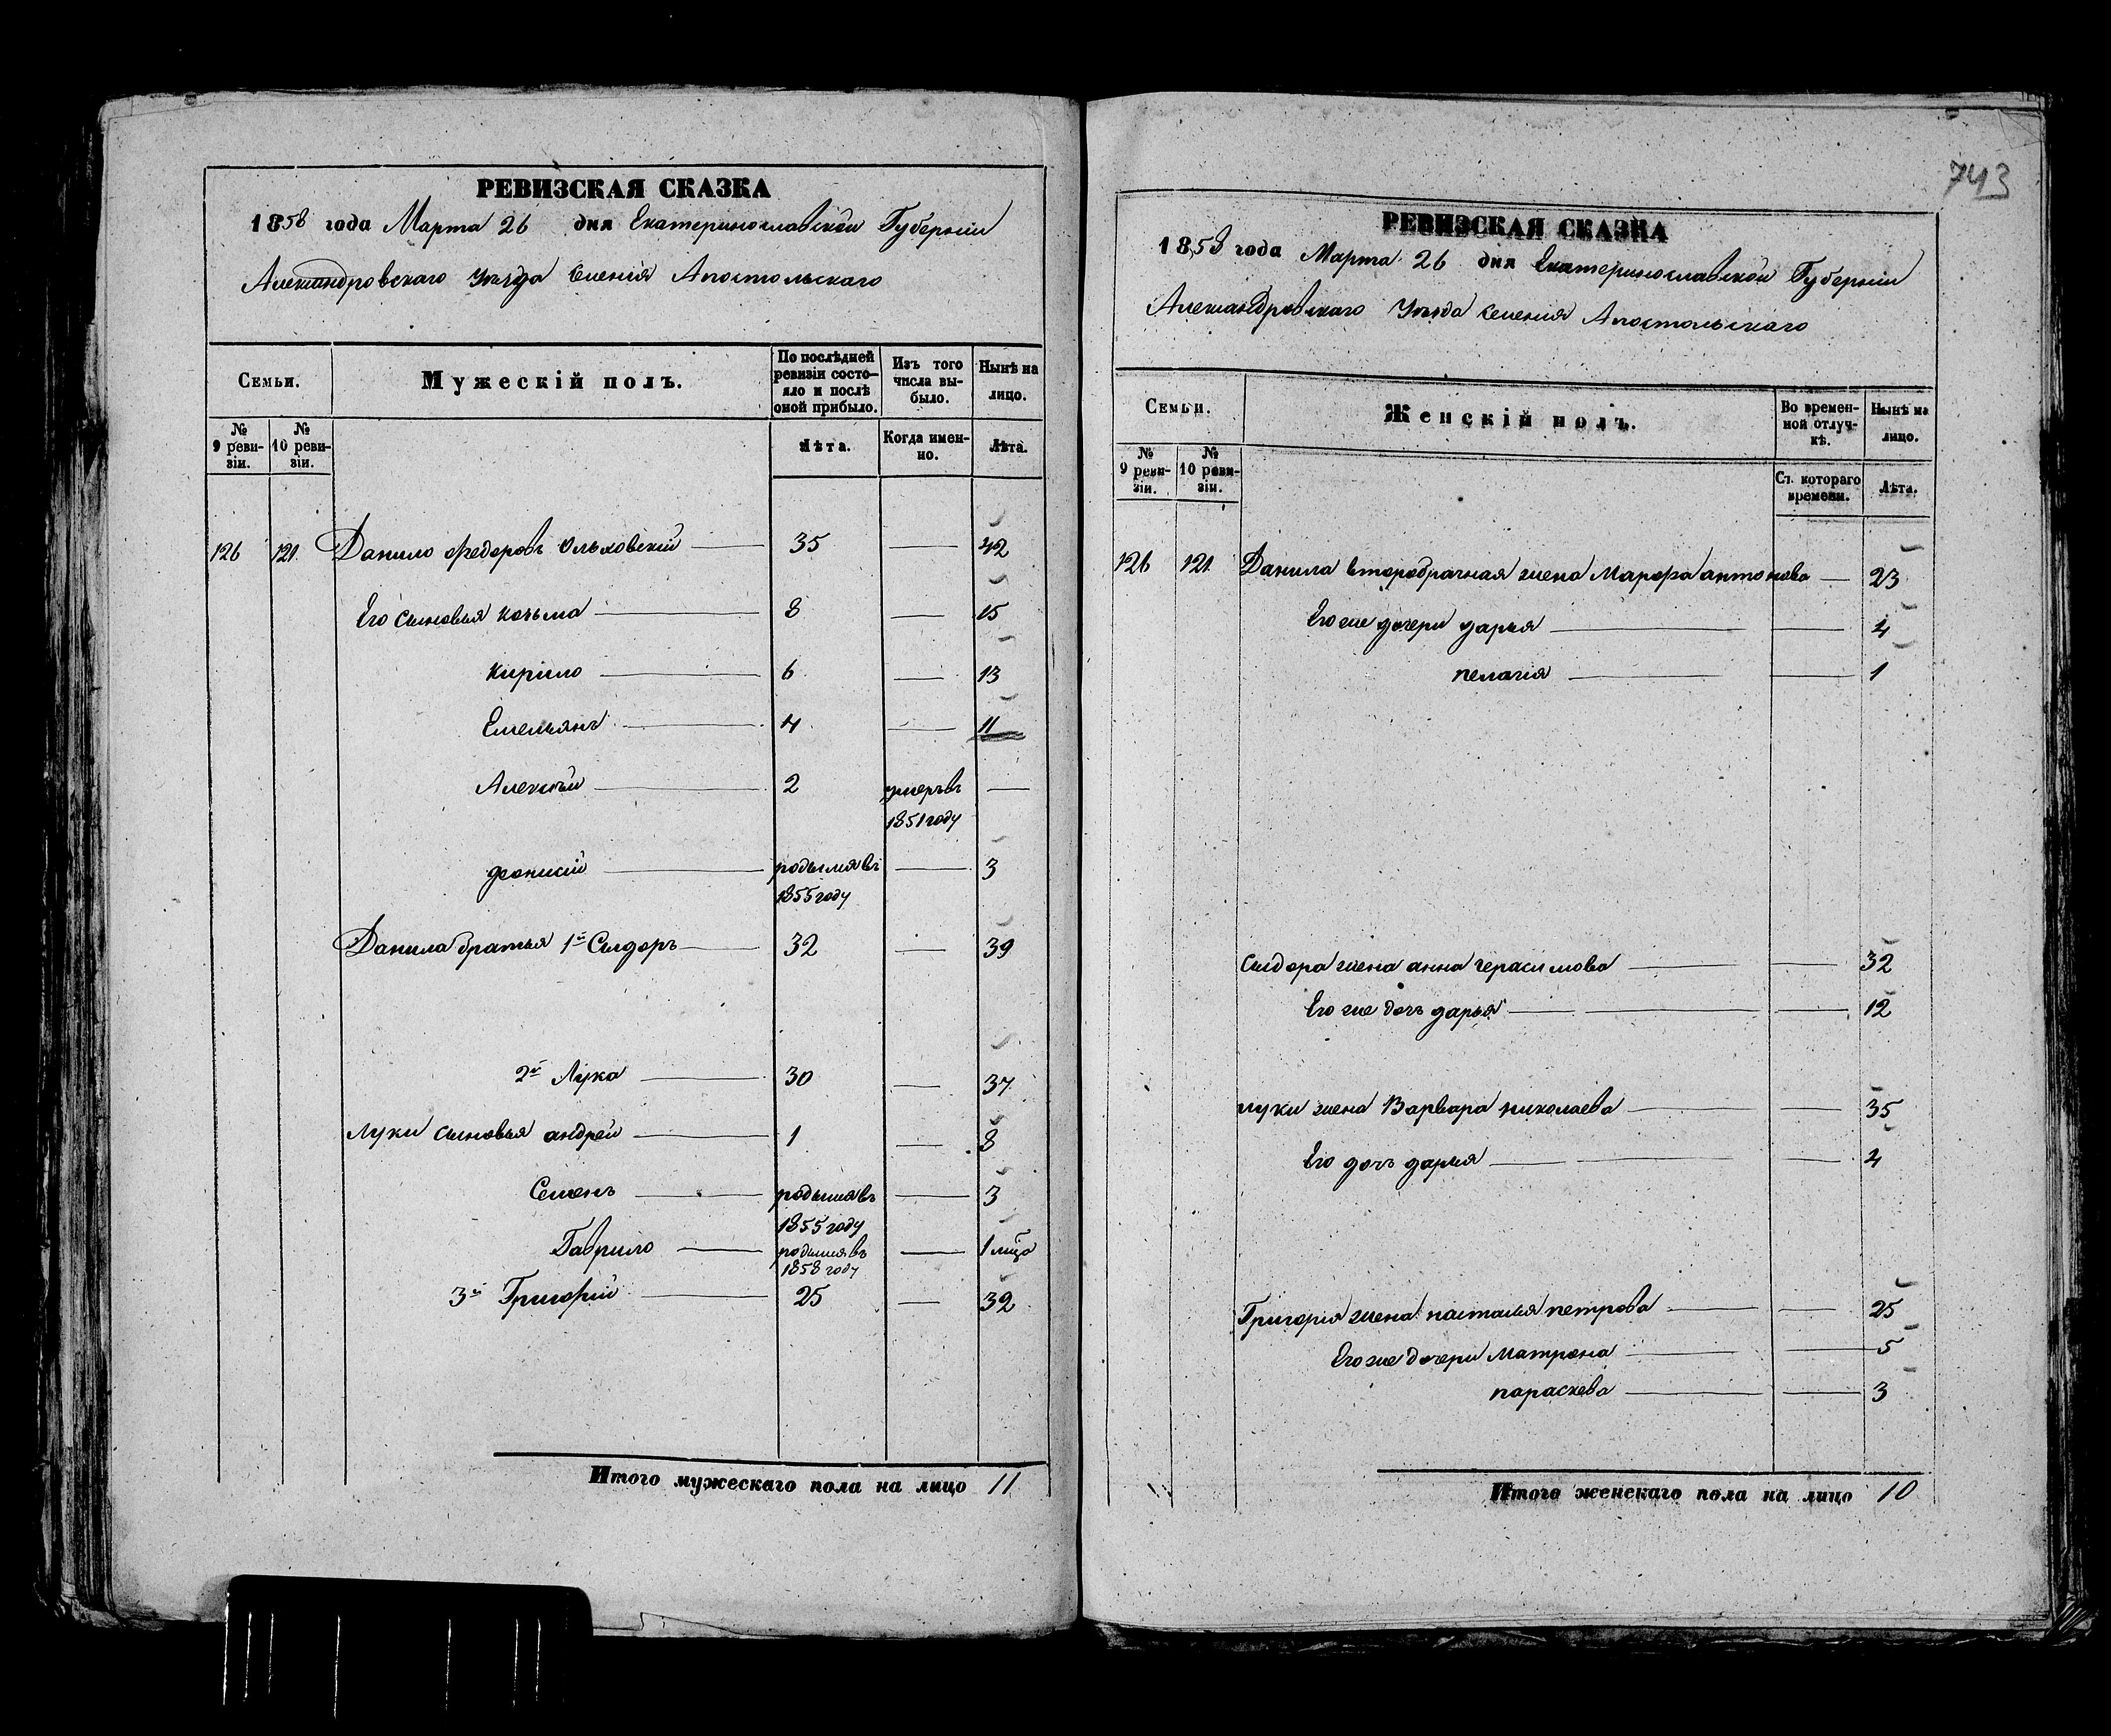 743
РЕВИЗСКАЯ СКАЗКА
1858 года Марта 26 дня Екатеринославской Губернии
Александровского Уѣзда Селенія Апостольскаго
Семьи.
Мужескій полъ.
По послѣдней ревизіи состояло и послѣ оной прибыло.
Изъ того числа выбыло.
Нынѣ на лицо.
№ 9 ревизіи.
№ 10 ревизіи.
Лѣта.
Когда именно.
Лѣта.
126 121 Данило Федоровъ Ольховскій 35 — 42
Его сыновья козьма 8 — 15
кирило 6 — 13
Емельянъ 4 — 11
Алексѣй 2 умеръ въ 1851 году —
дионисій родился въ 1855 году — 3
Данила братья 1й Сидоръ 32 — 39
2й Лука 30 — 37
Луки сыновья андрей 1 — 8
Семенъ родился въ 1855 году — 3
Гаврило родился въ 1858 году — 1 мца
3й Григорій 25 — 32
Итого мужескаго пола на лицо 11
РЕВИЗСКАЯ СКАЗКА
1858 года Марта 26 дня Екатеринославской Губерніи
Александровскаго Уѣзда селенія Апостольскаго
Семьи.
Женскій полъ.
Во временной отлучкѣ.
Нынѣ на лицо.
№ 9 ревизіи.
№ 10 ревизіи.
Съ котораго времени.
Лѣта.
126 121 Данила второбрачная жена Марфа антонова — 23
Его же дочери дарья — 4
пелагія — 1
сидора жена анна герасимова — 32
Его же дочь дарья — 12
луки жена Варвара николаева — 35
Его дочь дарья — 4
Григорія жена настасья петрова — 25
Его же дочери Матрона — 5
параскева — 3
Итого женскаго пола на лицо 10